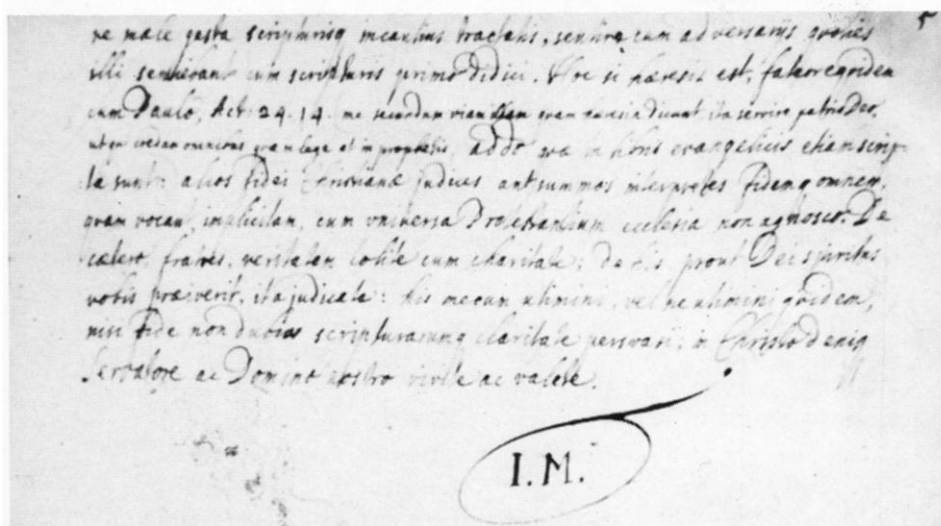 re male gesta scripturisq incautius tractatis, sentire cum adversarijs quoties
illi sentirent cum scripturis primo didici. Hoc si hæresis est, fateor equidem
cum Paulo, Act. 24.14. me secundum viam quam hæresin dicunt, ita servire patrio Deo,
ut qui credam omnibus quæ in lege et in prophetis, addo quæ in libris evangelicis etiam scrip-
ta sunt: alios fidei christianæ judices aut summos interpretes fidemq omnem,
quam vocant, implicitam, cum universa Protestantium ecclesia non agnosco. De
cætero, fratres, veritatem colite cum charitate; de his prout Dei spiritus
vobis præiverit, ita judicate: his mecum utimini, vel ne utimini quidem,
nisi fide non dubia scripturarumq claritate persuasi; in Christo deniq
Servatore ac Domino nostro vivite ac valete.
I.M.
5